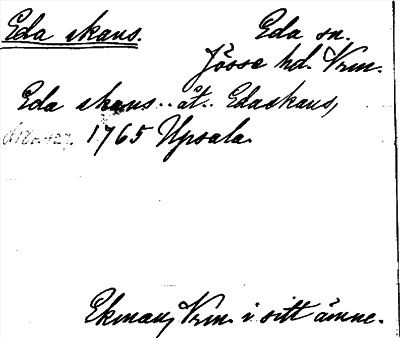 Eda skans.
Eda sn.
Jösse hd. Vrm.
Eda skans.. åt.. Edaskans,
1765 Upsala.
Ekman, Vrm. i sitt ämne.